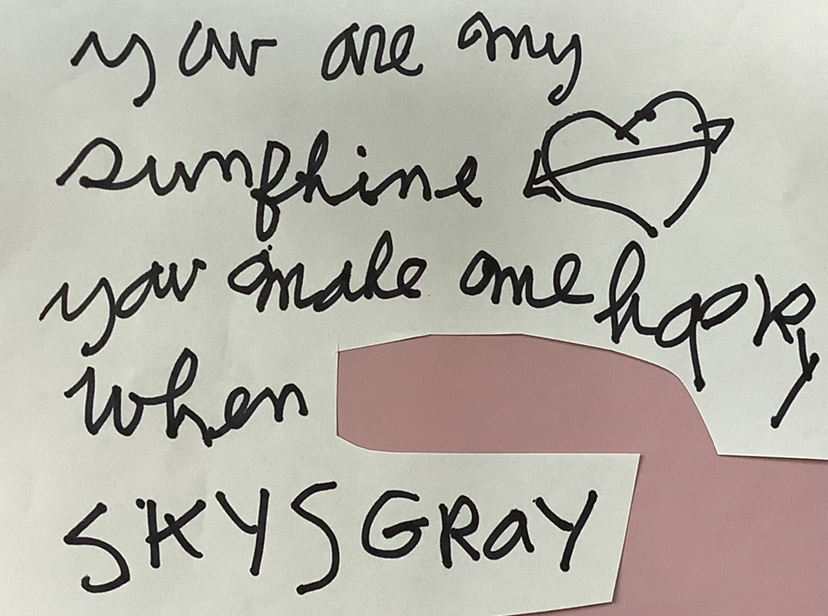 you are my
sunshine
you make me happy
when
SKYS GRaY